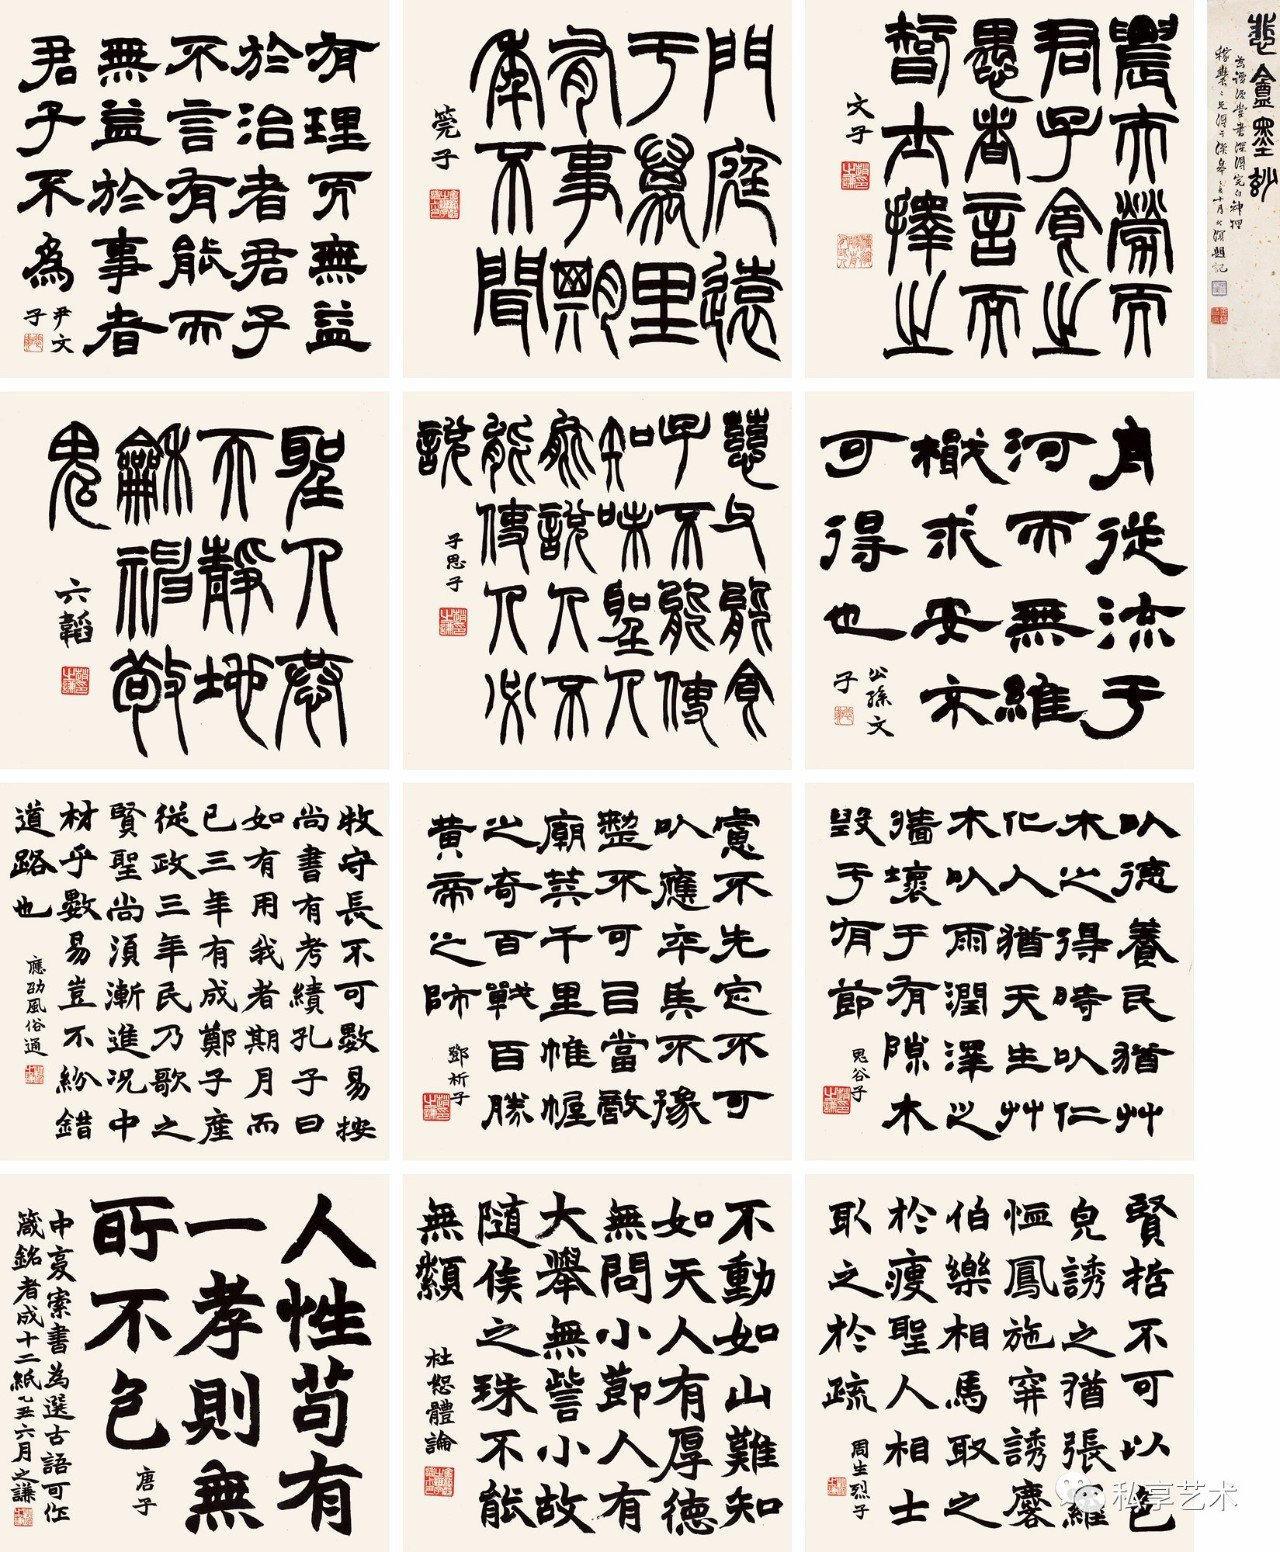 悲盦墨妙
農夫勞而
君子食之
愚者言而
智士擇之
文子
門庭遠
于萬里
有事期
年不聞
筦子
有理而無益
於治者君子
不言有能而
無益於事者
君子不為
尹文子
舟從流于
河而無維
檝求安不
可得也
公孫文子
慈父能食
子不能使
知味聖人
能說人不
能使人必
說
子思子
聖人恭
天靜地
龢神敬
鬼
六韜
以德養民猶艸
木之得時以仁
化人猶天生艸
木以雨潤澤之
牆壞于有隙木
毀于有節
鬼谷子
慮不先定不可
以應卒兵不豫
整不可㠯當敵
廟筭千里帷幄
之奇百戰百勝
黃帝之師
鄧析子
牧守長不可數易按
尚書有考績孔子曰
如有用我者期月而
已三年有成鄭子產
從政三年民乃歌之
賢聖尚須漸進況中
材乎數易豈不紛錯
道路也
應劭風俗通
賢哲不可以色
皃誘之猶張羅
恤鳳施穽誘麐
伯樂相馬取之
於瘦聖人相士
取之於疏
周生烈子
不動如山難知
如天人有厚德
無問小節人有
大舉無訾小故
隨侯之珠不能
無纇
杜恕體論
人性苟有
一孝則無
所不包
唐子
中夏索書為選古語可作
箴銘者成十二紙乙丑六月之謙
私享艺术